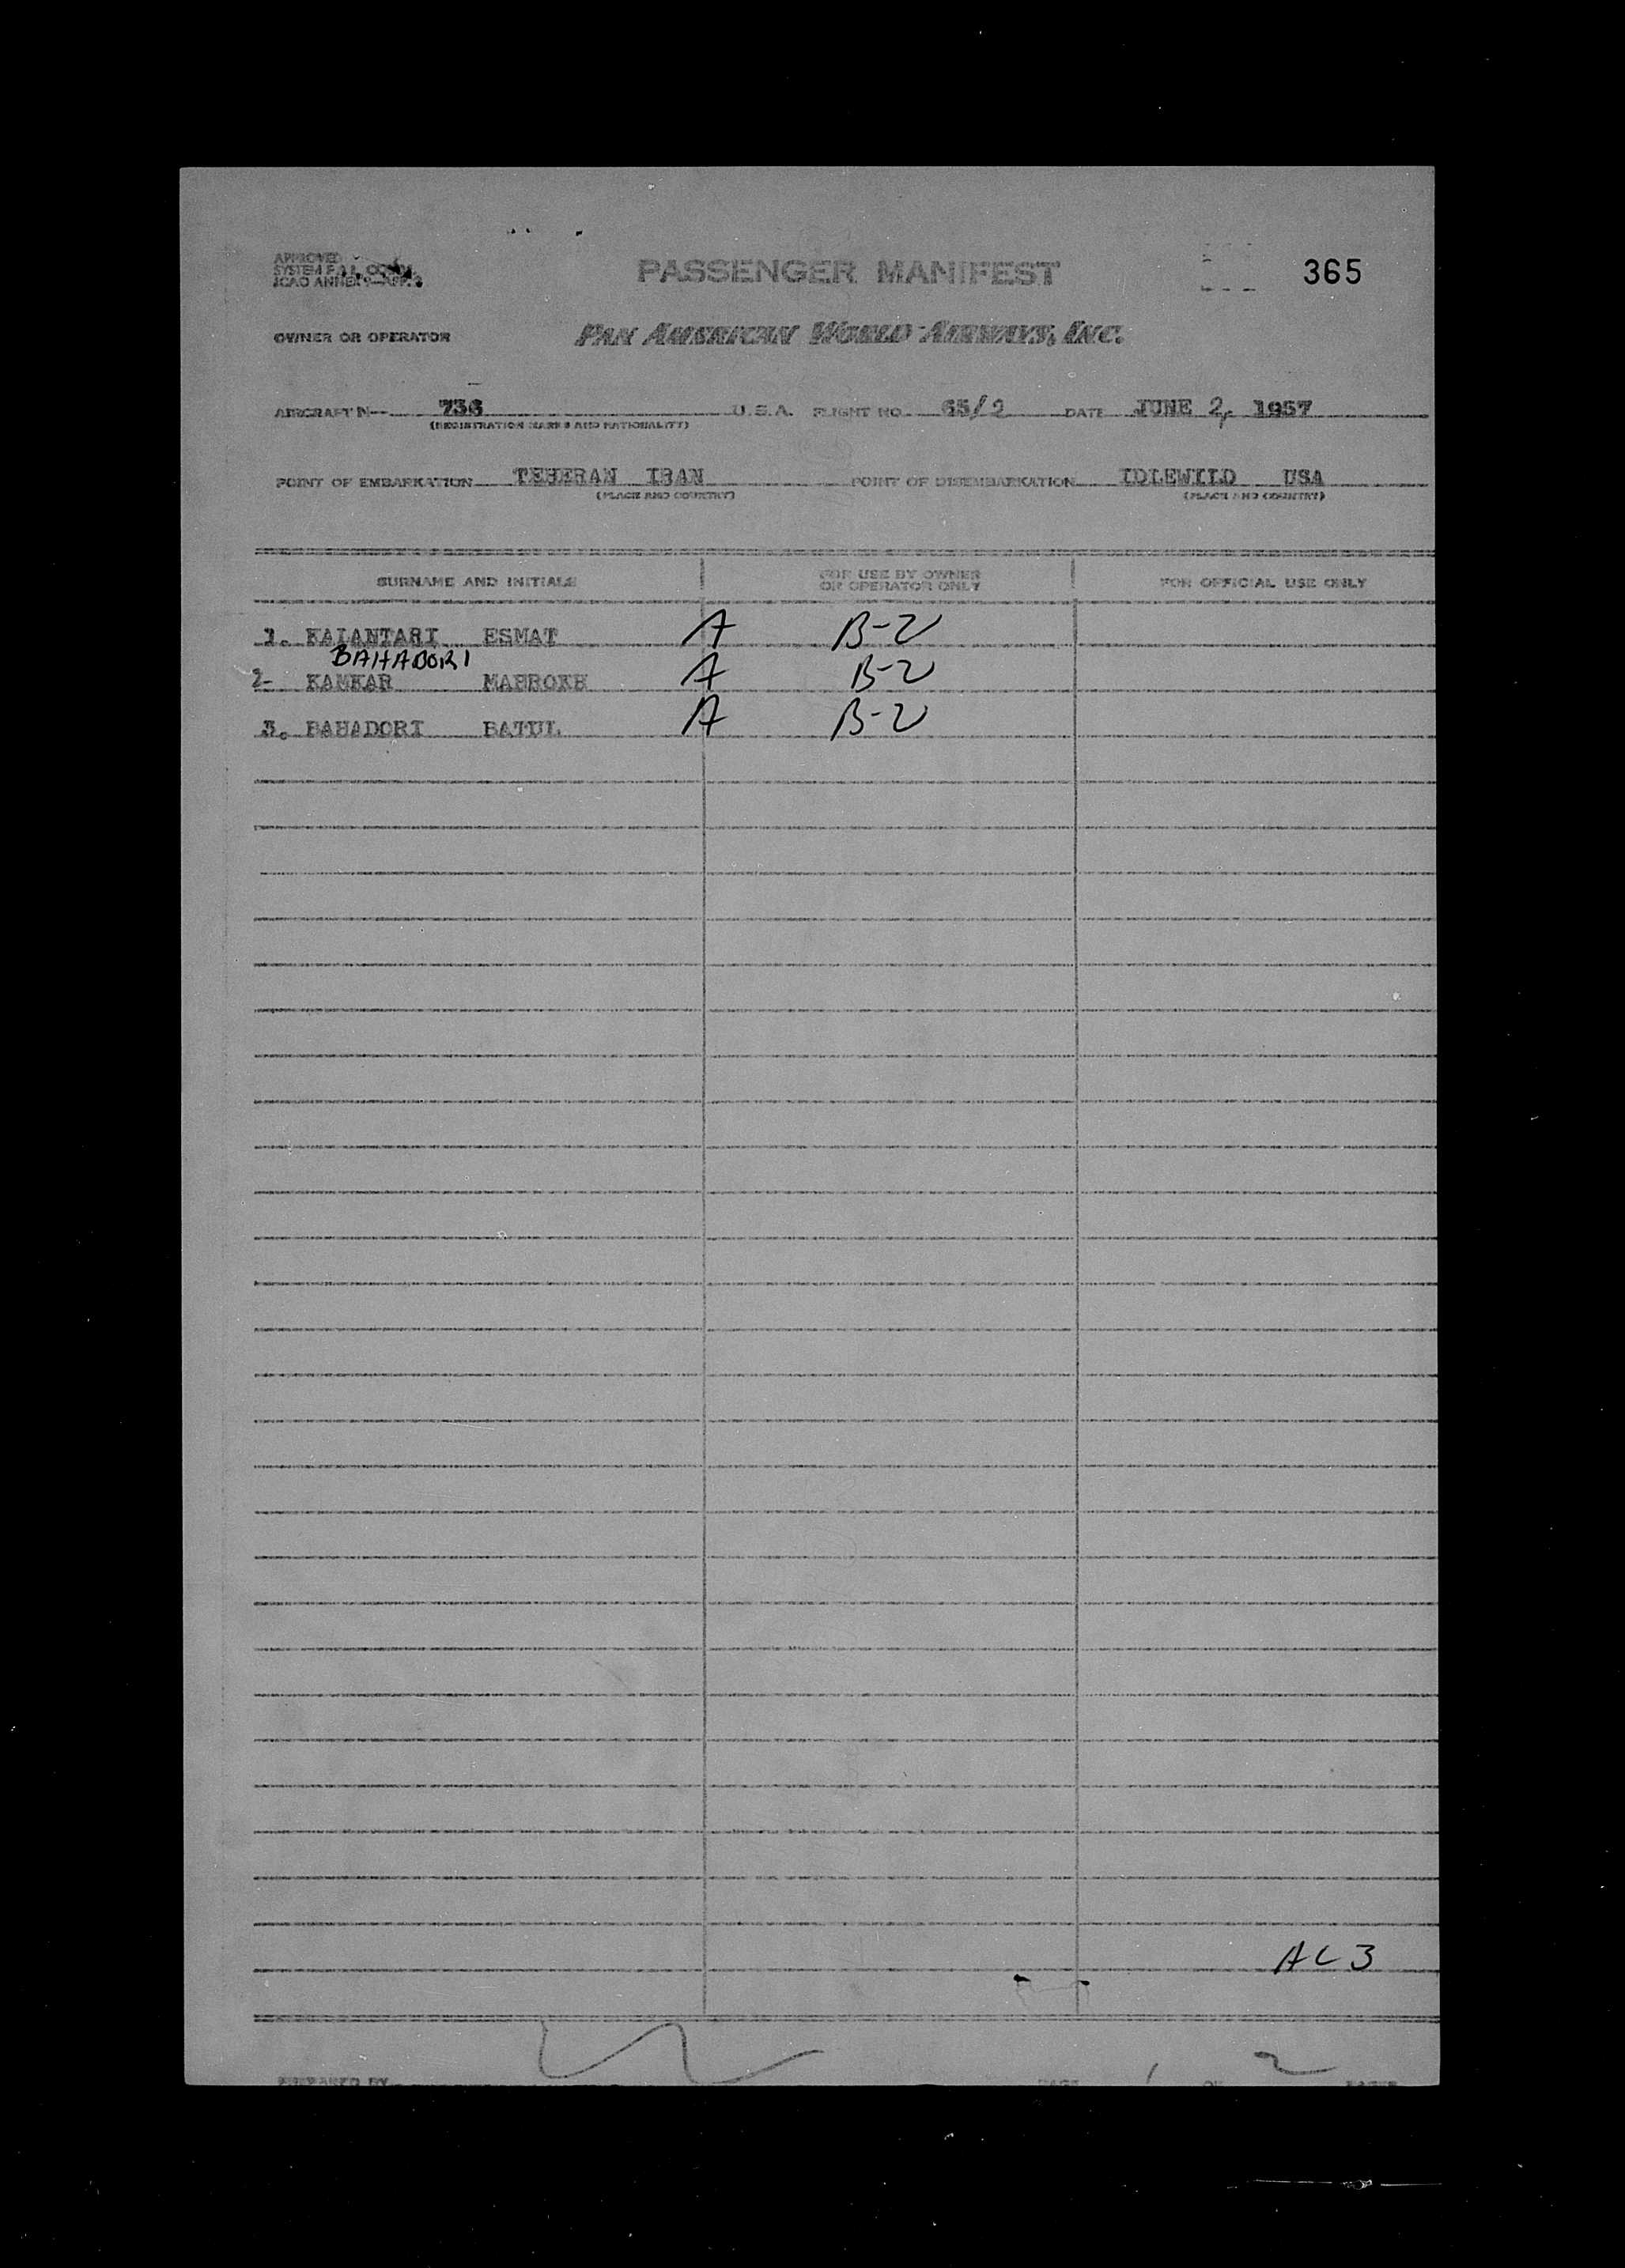 APPROVED
SYSTEM F.A.L.
ICAO ANNEX 9—APP. 3
PASSENGER MANIFEST
365
OWNER OR OPERATOR PAN AMERICAN WORLD AIRWAYS, INC.
AIRCRAFT N— 736 U.S.A. FLIGHT NO. 65/2 DATE JUNE 2, 1957
(REGISTRATION MARKS AND NATIONALITY)
POINT OF EMBARKATION TEHERAN IRAN POINT OF DISEMBARKATION IDLEWILD USA
(PLACE AND COUNTRY) (PLACE AND COUNTRY)
SURNAME AND INITIALS FOR USE BY OWNER OR OPERATOR ONLY FOR OFFICIAL USE ONLY
1. KALANTARI ESMAT A B-2
BAHADORI
2- KAMKAR MAHROKH A B-2
3. BAHADORI BATUL A B-2
AC 3
PREPARED BY PAGE 1 OF 2 PAGES